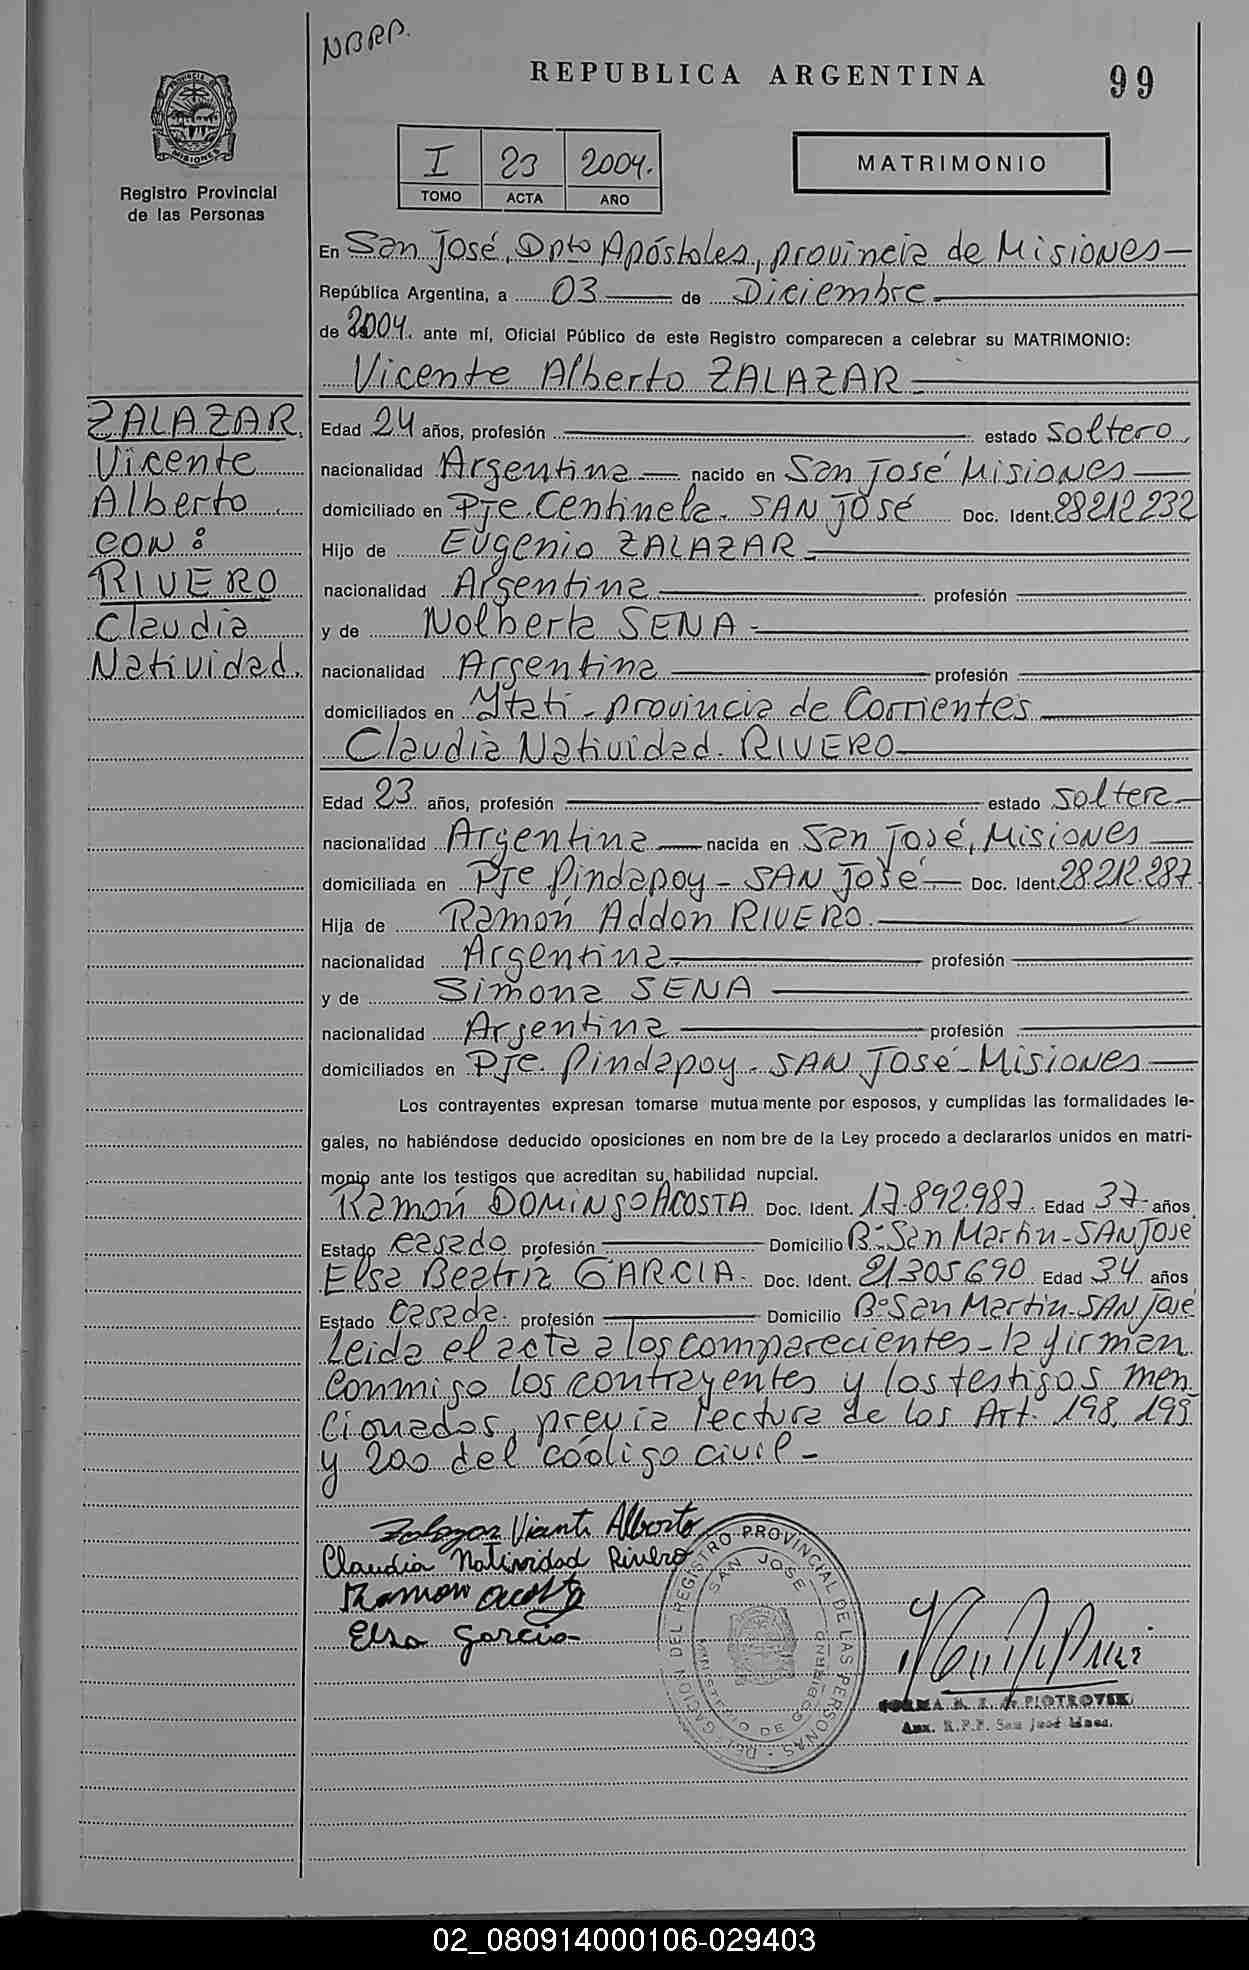 NBRP.
REPUBLICA ARGENTINA
99
PROVINCIA DE
MISIONES
Registro Provincial
de las Personas
I 23 2004.
TOMO ACTA AÑO
MATRIMONIO
En San José, Dpto Apóstoles, provincia de Misiones —
República Argentina, a 03 — de Diciembre —
de 2004. ante mí, Oficial Público de este Registro comparecen a celebrar su MATRIMONIO:
Vicente Alberto ZALAZAR —
ZALAZAR.
Vicente
Alberto
CON:
RIVERO
Claudia
Natividad.
Edad 24 años, profesión — estado Soltero,
nacionalidad Argentina — nacido en San José Misiones —
domiciliado en Pje. Centinela. SAN JOSÉ Doc. Ident. 28212232
Hijo de Eugenio ZALAZAR —
nacionalidad Argentina — profesión —
y de Nolberta SENA —
nacionalidad Argentina — profesión —
domiciliados en Ytatí - provincia de Corrientes —
Claudia Natividad. RIVERO —
Edad 23. años, profesión — estado soltera —
nacionalidad Argentina — nacida en San José, Misiones —
domiciliada en Pje Pindapoy - SAN José — Doc. Ident. 28.212.287
Hija de Ramón Addon RIVERO. —
nacionalidad Argentina — profesión —
y de Simona SENA —
nacionalidad Argentina — profesión —
domiciliados en Pje. Pindapoy - SAN José - Misiones —
Los contrayentes expresan tomarse mutua mente por esposos, y cumplidas las formalidades le-
gales, no habiéndose deducido oposiciones en nom bre de la Ley procedo a declararlos unidos en matri-
monio ante los testigos que acreditan su habilidad nupcial.
Ramón DOMINGO ACOSTA Doc. Ident. 17.892.987. Edad 37 años,
Estado casado profesión — Domicilio B° San Martin - SAN JOSE
Elsa Beatriz GARCIA. Doc. Ident. 21305690 Edad 34 años
Estado casada. profesión — Domicilio B° San Martin - SAN José
Leida el acta a los comparecientes - la firman
conmigo los contrayentes y los testigos men
cionados, previa lectura de los Art. 198, 199
y 200 del código civil -
Zalazar Vicente Alberto
Claudia Natividad Rivero
Ramon Acosta
Elsa Garcia
DELEGACION DEL REGISTRO PROVINCIAL DE LAS PERSONAS -
SAN JOSE
MINISTERIO DE GOBIERNO
NORMA de PIOTROVSKI
Aux. R.P.P. San José Mnes.
02_080914000106-029403